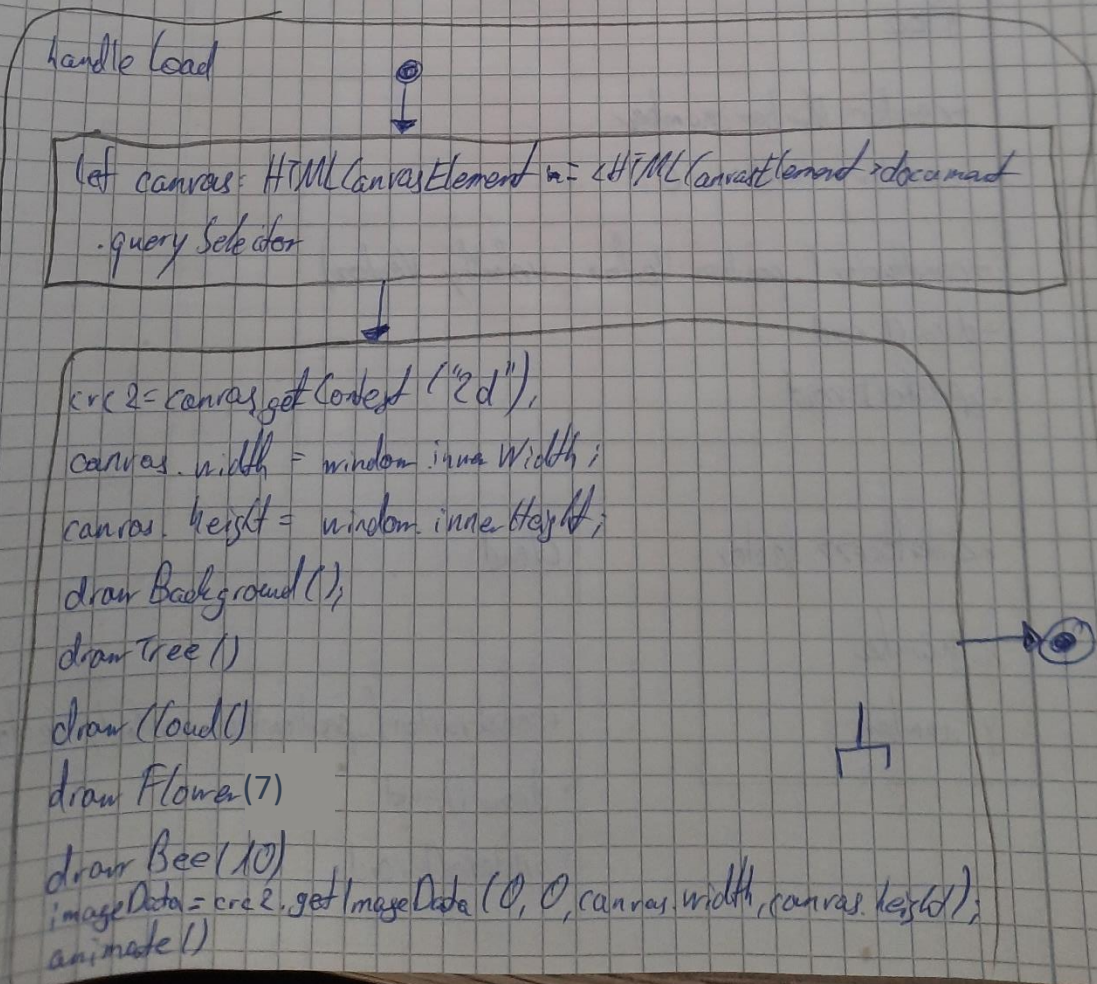 handle Load
let canvas: HTMLCanvasElement = <HTMLCanvasElement>document
.querySelector
crc2=canvas.getContext("2d"),
canvas.width = window.innerWidth;
canvas.height = window.innerHeight;
drawBackground();
drawTree()
drawCloud()
drawFlower(7)
drawBee(10)
imageData=crc2.getImageData(0, 0, canvas.width, canvas.height);
animate()